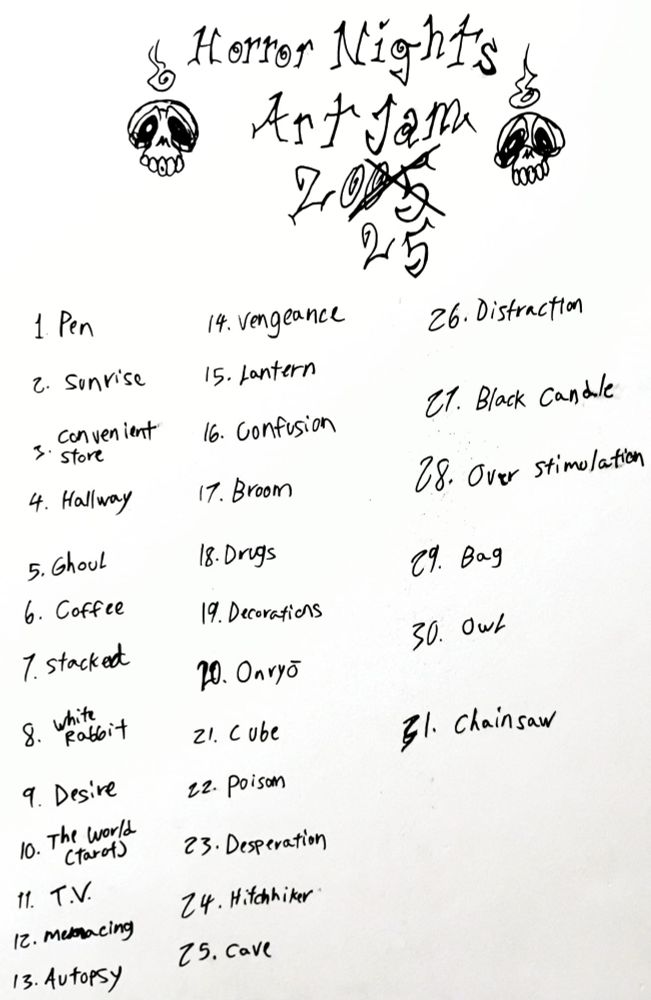 Horror Nights
Art Jam
2005
25
1. Pen
2. Sunrise
3. Convenient
store
4. Hallway
5. Ghoul
6. Coffee
7. Stacked
8. White
Rabbit
9. Desire
10. The World
(tarot)
11. T.V.
12. Menacing
13. Autopsy
14. Vengeance
15. Lantern
16. Confusion
17. Broom
18. Drugs
19. Decorations
20. Onryō
21. Cube
22. Poison
23. Desperation
24. Hitchhiker
25. Cave
26. Distraction
27. Black Candle
28. Over stimulation
29. Bag
30. Owl
31. Chainsaw